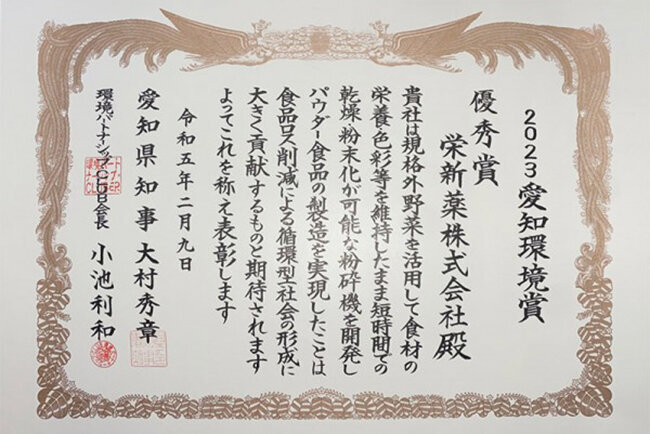 2023愛知環境賞
優秀賞
栄新薬株式会社殿
貴社は規格外野菜を活用して食材の
栄養・色彩等を維持したまま短時間での
乾燥・粉末化が可能な粉砕機を開発し
パウダー食品の製造を実現したことは
食品ロス削減による循環型社会の形成に
大きく貢献するものと期待されます
よってこれを称え表彰します
令和五年二月九日
愛知県知事 大村秀章
環境パートナーシップ・CLUB会長 小池利和